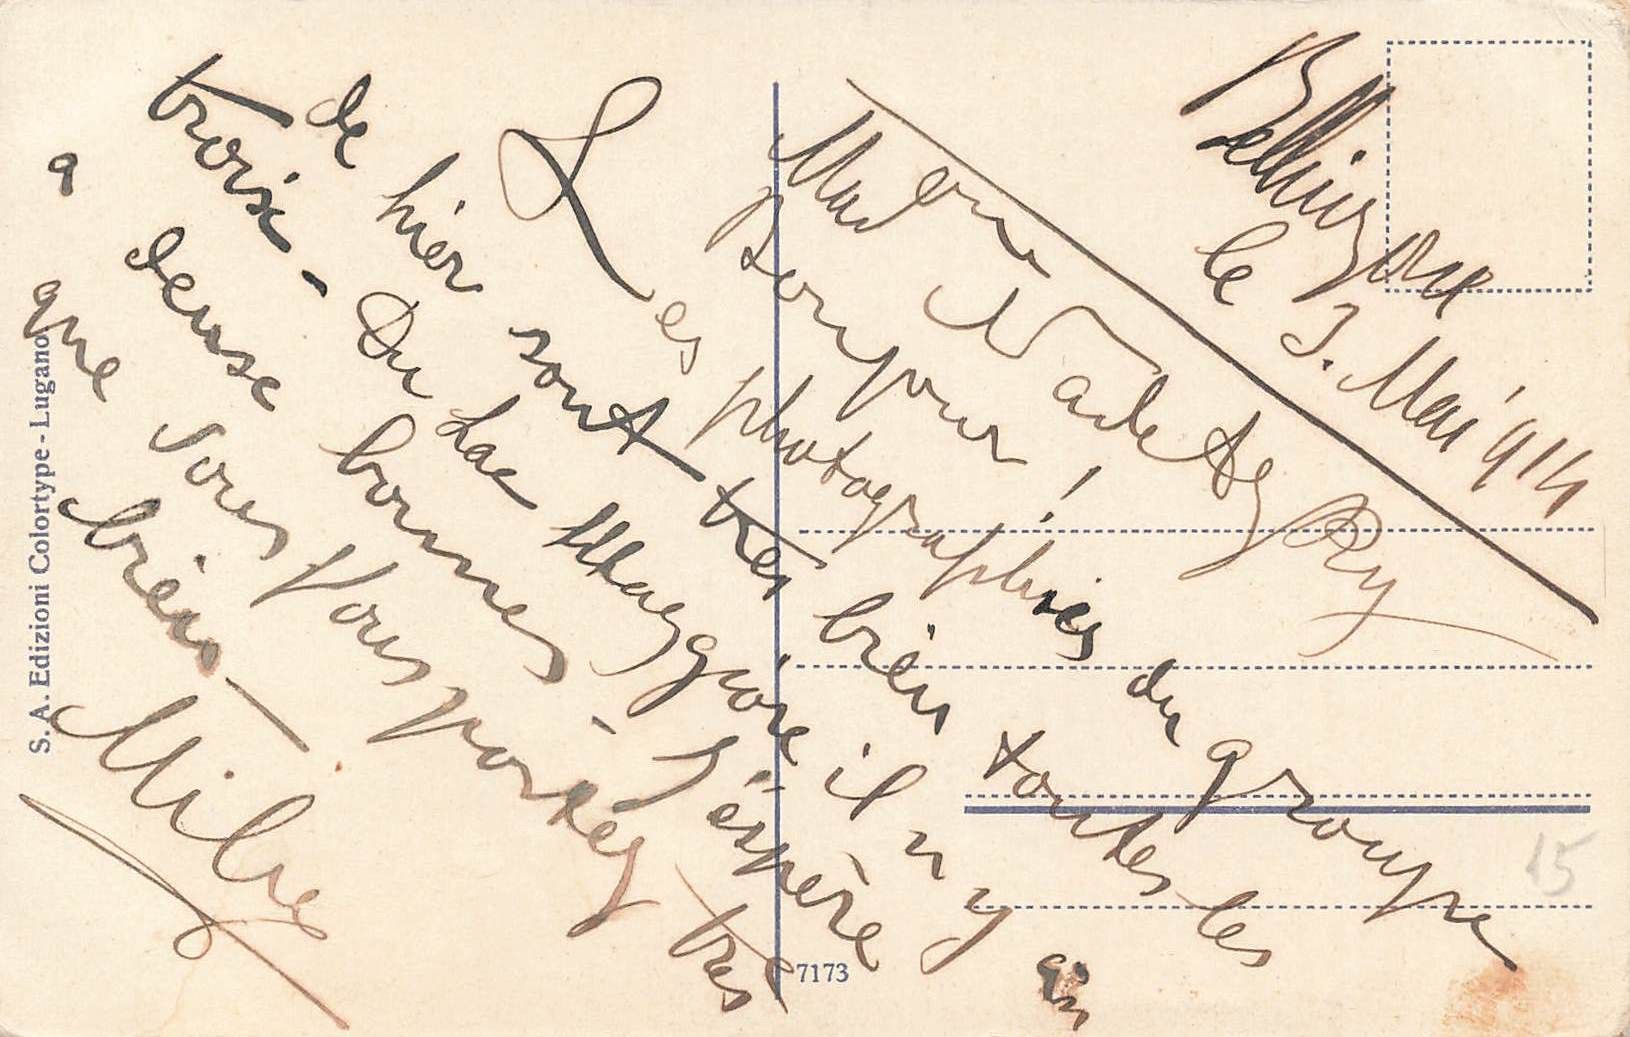 Bellinzone
le 3. Mai 914
Bonjour!
Les photographies du groupe
de hier sont très bien toutes les
troix - Du Lac Maggiore il n y en
a deuse bonnes - J'éspère
que Vous Vous portéz très
bien -
S. A. Edizioni Colortype - Lugano
7173
15